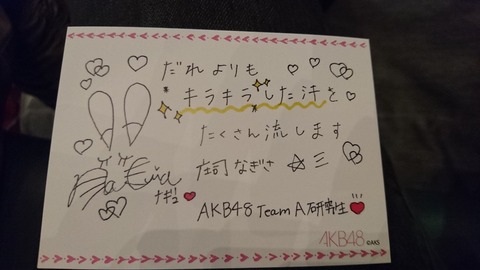 だれよりも
キラキラした汗を
たくさん流します
庄司なぎさ☆三
ナギュ
AKB48 Team A研究生
AKB48 ©AKS